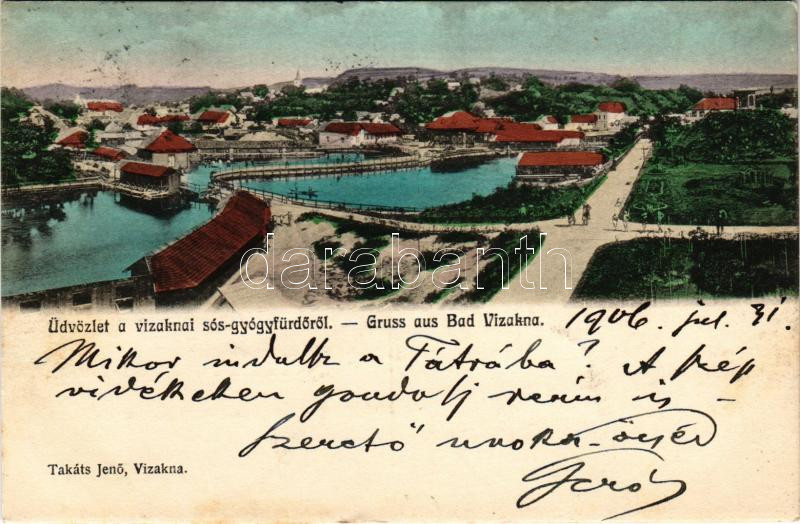 darabanth.com
Üdvözlet a vizaknai sós-gyógyfürdőről. — Gruss aus Bad Vizakna. 1906. jul. 31.
Mikor indultok a Tátrába? A szép
vidékeken gondolj reám is –
Szerető unoka-öcséd
Takáts Jenő, Vizakna.